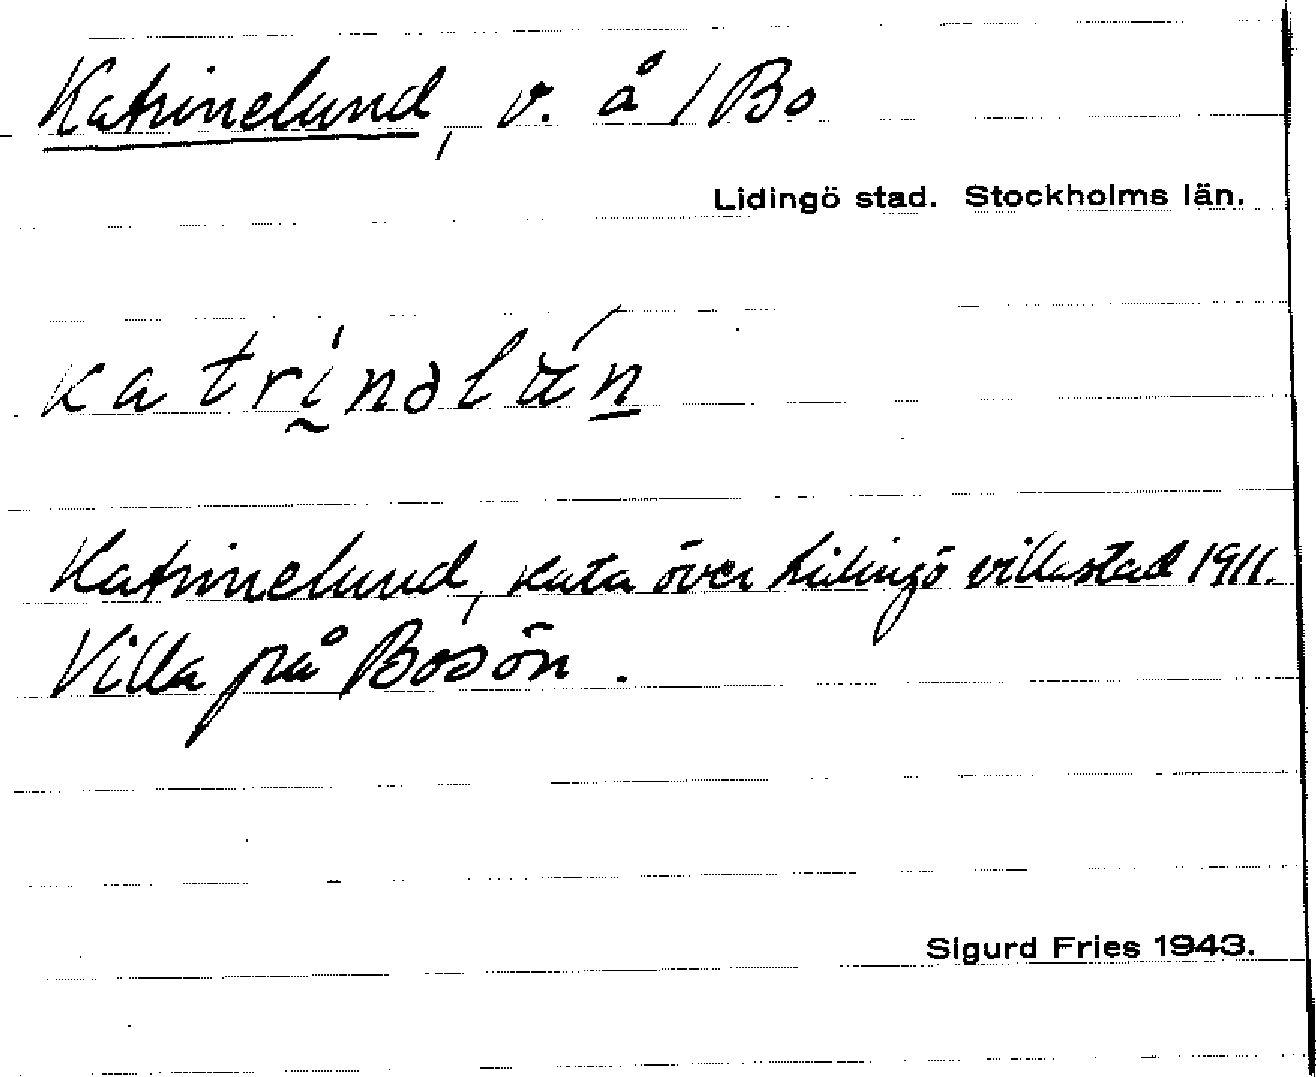 Katrinelund, v. å / Bo
Lidingö stad. Stockholms län.
katrinəlún
Katrinelund, karta över Lidingö villastad 1911.
Villa på Bosön.
Sigurd Fries 1943.